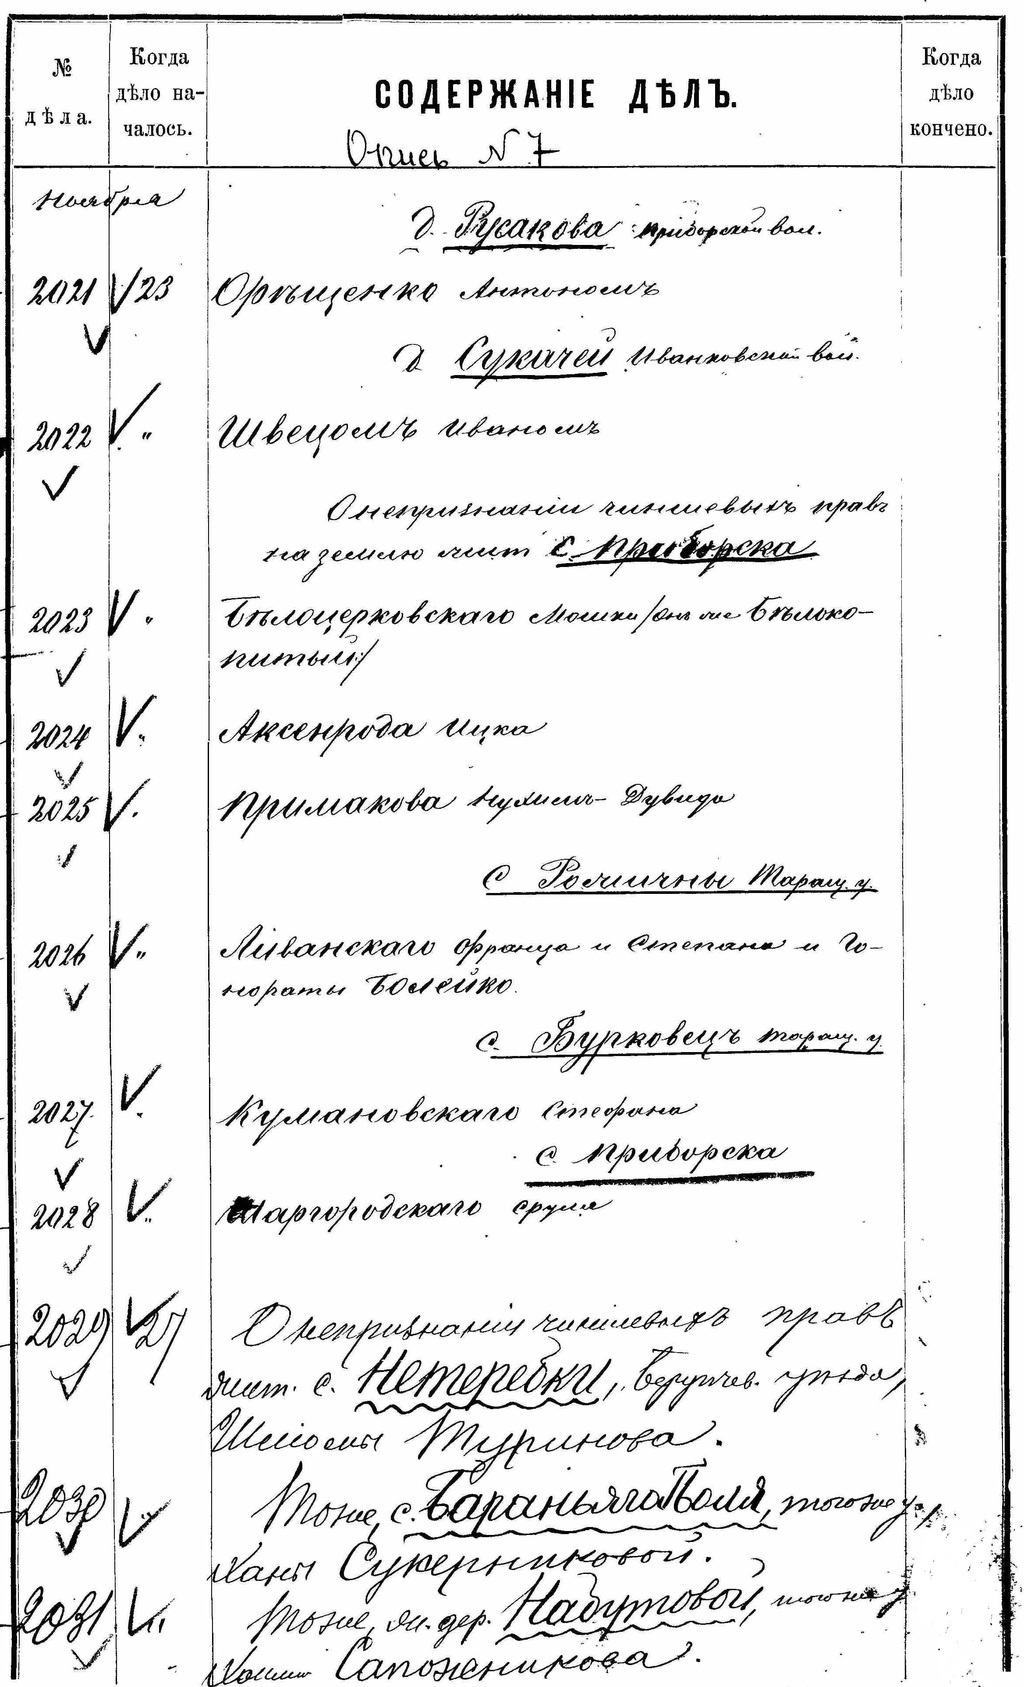 № дѣла.
Когда дѣло началось.
СОДЕРЖАНІЕ ДѢЛЪ.
Когда дѣло кончено.
Опись N 7
Ноября
д. Русакова Приборской вол.
2021 23 Орѣщенко Антономъ
д Сукачей Иванковской вол.
2022 " Швецомъ Иваномъ
О непризнаніи чиншевыхъ правъ
на землю жит с. Приборска
2023 " Бѣлоцерковскаго Мошки /онъ же Бѣлоко-
питый/
2024 " Аксенрода Ицка
2025 " Примакова Нухимъ-Дувида
с Ромичны Таращ. у.
2026 " Ливанскаго Франца и Степана и Го-
нораты Болейко.
с. Бурковецъ Таращ. у.
2027 " Кумановскаго Стефана
с. Приборска
2028 " Шаргородскаго Сруля
2029 27 О непризнаніи чиншевыхъ правъ
жит. с. Нетеребки, Бердичев. уѣзда,
Шліомы Туринова.
2030 " Тоже, с. Бараньяго Поля, тогоже у.,
Ханы Сукерниковой.
2031 " Тоже, жи. дер. Набутовой, тогоже у
Сапожникова.